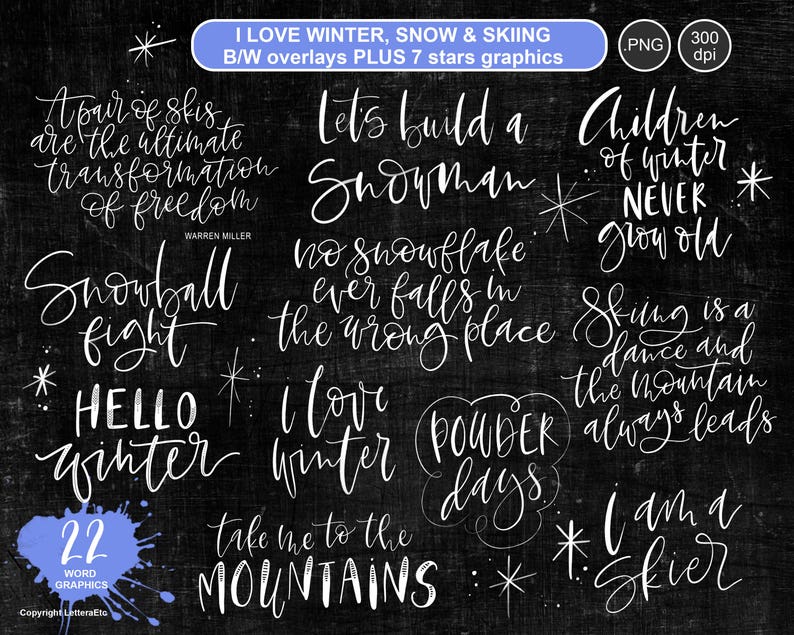 I LOVE WINTER, SNOW & SKIING
B/W overlays PLUS 7 stars graphics
.PNG
300
dpi
A pair of skis
are the ultimate
transformation
of freedom
WARREN MILLER
Let's build a
Snowman
Children
of winter
NEVER
grow old
Snowball
fight
no snowflake
ever falls in
the wrong place
Skiing is a
dance and
the mountain
always leads
HELLO
winter
i love
winter
POWDER
days
take me to the
MOUNTAINS
i am a
skier
22
WORD
GRAPHICS
Copyright LetteraEtc